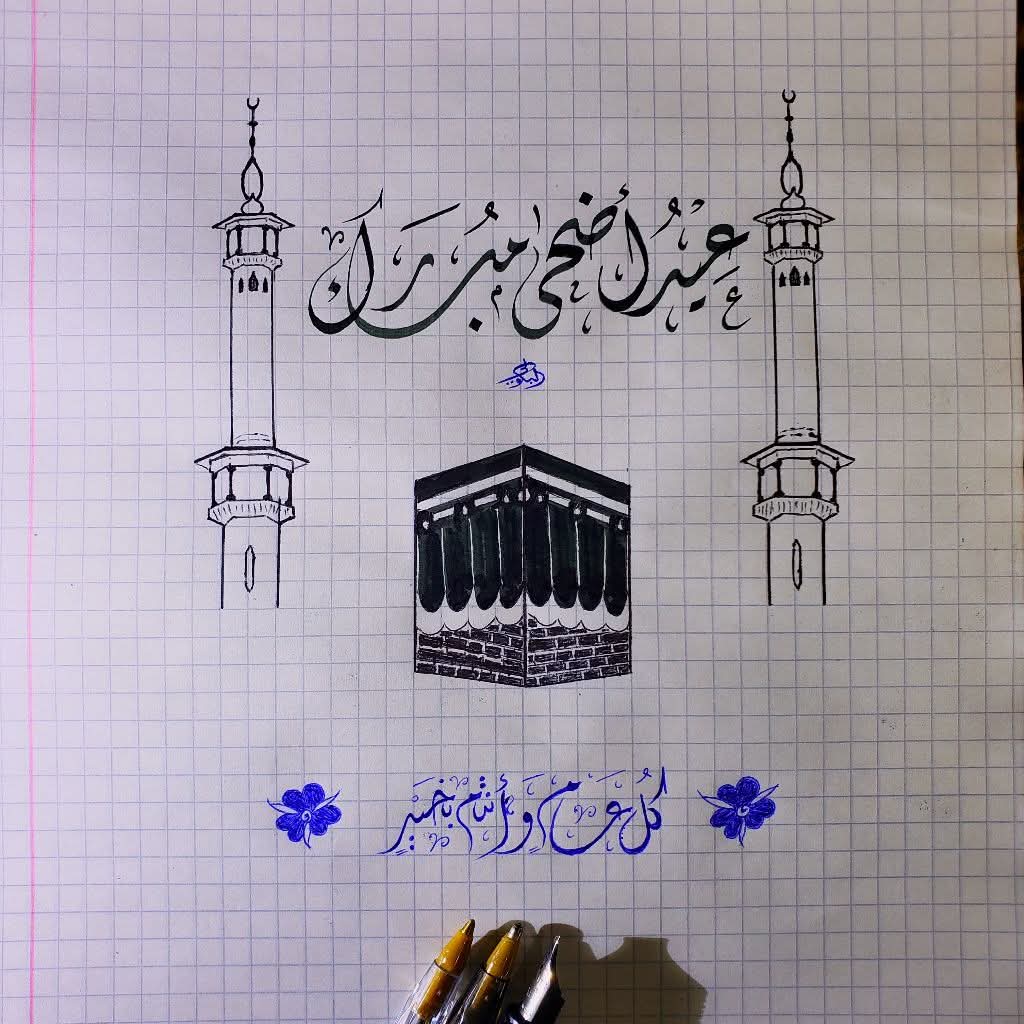 عِيدُ أضحى مُبَرَك
كُلُ عَام وَأنتُم بِخَيْرٍ